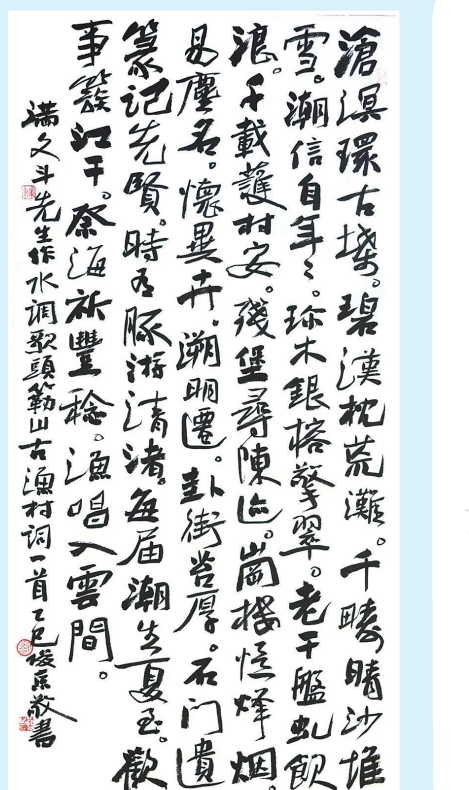 滄溟環古堞。碧漢枕荒灘。千疇晴沙堆
雪。潮信自年々。珎木銀榕擎翠。老干盤虬飲
浪。千載護村安。殘堡尋陳迹。崗楼憶烽烟。
易塵名。懷異卉。溯明遷。卦街苔厚。石門遺
篆記先賢。時有豚游清渚。每届潮生夏至。歡
事簇江干。祭海祈豐稔。漁唱入雲間。
满文斗先生作水调歌頭簕山古漁村詞一首乙巳俊敬書